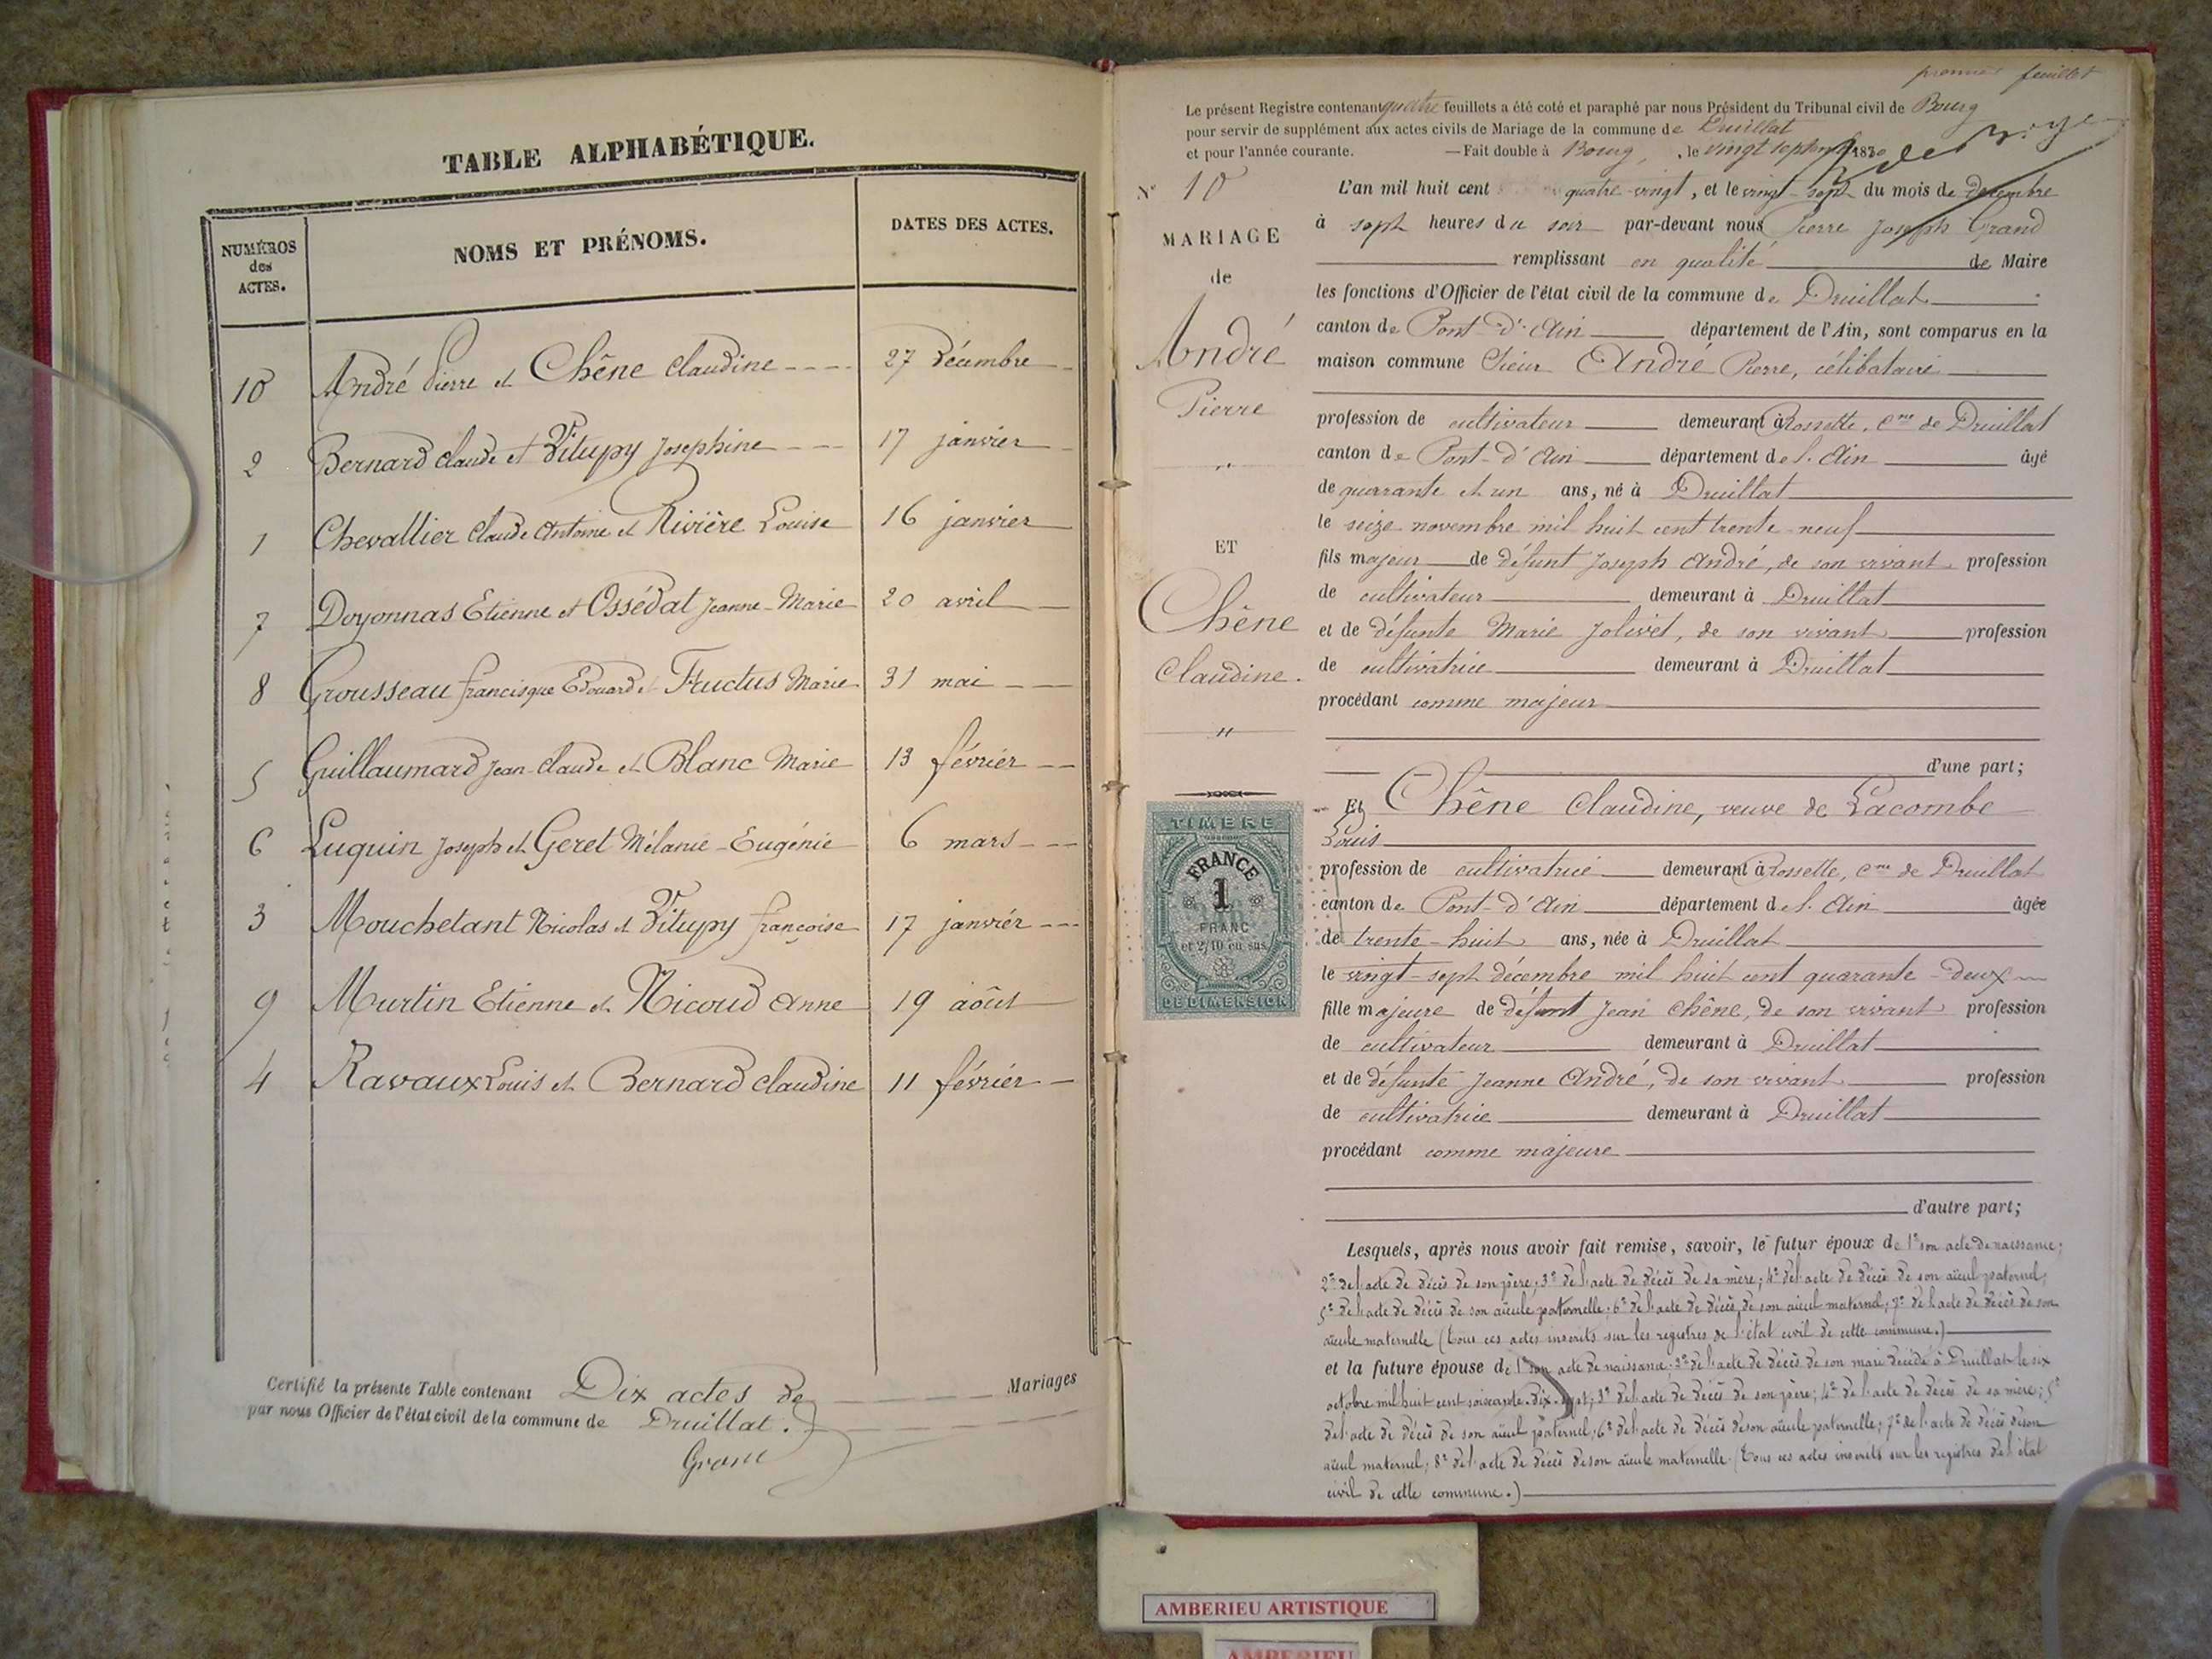 TABLE ALPHABÉTIQUE.
NUMÉROS des ACTES.
NOMS ET PRÉNOMS.
DATES DES ACTES.
10 André Pierre et Chêne Claudine 27 Décembre
2 Bernard Claude et Vitupy Josephine 17 janvier
1 Chevallier Claude Antoine et Rivière Louise 16 janvier
7 Doyonnas Etienne et Ossédat Jeanne-Marie 20 avril
8 Grousseau francisque Edouard et Fructus Marie 31 mai
5 Guillaumard Jean-Claude et Blanc Marie 13 février
6 Luquin Joseph et Geret Mélanie-Eugénie 6 mars
3 Mouchetant Nicolas et Vitupy françoise 17 janvier
9 Murtin Etienne et Nicoud Anne 19 août
4 Ravaux Louis et Bernard Claudine 11 février
Certifié la présente Table contenant Dix actes de Mariages
par nous Officier de l'état civil de la commune de Druillat.
premier feuillet
Le présent Registre contenant quatre feuillets a été coté et paraphé par nous Président du Tribunal civil de Bourg
pour servir de supplément aux actes civils de Mariage de la commune de Druillat
et pour l'année courante. — Fait double à Bourg, le vingt septembre 1880
N° 10
MARIAGE
de
André
Pierre
ET
Chêne
Claudine.
L'an mil huit cent quatre-vingt, et le vingt-sept du mois de Décembre
à sept heures du soir par-devant nous Pierre Joseph Grand
remplissant en qualité de Maire
les fonctions d'Officier de l'état civil de la commune de Druillat
canton de Pont-d'Ain département de l'Ain, sont comparus en la
maison commune Sieur André Pierre, célibataire
profession de cultivateur demeurant à Rossette, Cne de Druillat
canton de Pont-d'Ain département de l'Ain âgé
de quarante et un ans, né à Druillat
le seize novembre mil huit cent trente-neuf
fils majeur de défunt Joseph André, de son vivant profession
de cultivateur demeurant à Druillat
et de défunte Marie Jolivet, de son vivant profession
de cultivatrice demeurant à Druillat
procédant comme majeur
d'une part;
Et Chêne Claudine, veuve de Lacombe
Louis
profession de cultivatrice demeurant à Rossette, Cne de Druillat
canton de Pont-d'Ain département de l'Ain âgée
de trente-huit ans, née à Druillat
le vingt-sept décembre mil huit cent quarante-deux
fille majeure de défunt Jean Chêne, de son vivant profession
de cultivateur demeurant à Druillat
et de défunte Jeanne André, de son vivant profession
de cultivatrice demeurant à Druillat
procédant comme majeure
d'autre part;
Lesquels, après nous avoir fait remise, savoir, le futur époux de 1° son acte de naissance;
2° de l'acte de décès de son père; 3° de l'acte de décès de sa mère; 4° de l'acte de décès de son aïeul paternel;
5° de l'acte de décès de son aïeule paternelle; 6° de l'acte de décès de son aïeul maternel; 7° de l'acte de décès de son
aïeule maternelle (Tous ces actes inscrits sur les registres de l'état civil de cette commune.)
et la future épouse de 1° son acte de naissance; 2° de l'acte de décès de son mari décédé à Druillat le six
octobre mil huit cent soixante-dix-sept; 3° de l'acte de décès de son père; 4° de l'acte de décès de sa mère; 5°
de l'acte de décès de son aïeul paternel; 6° de l'acte de décès de son aïeule paternelle; 7° de l'acte de décès de son
aïeul maternel; 8° de l'acte de décès de son aïeule maternelle. (Tous ces actes inscrits sur les registres de l'état
civil de cette commune.)
TIMBRE
FRANCE
1
FRANC
et 2/10 en sus
DE DIMENSION
AMBERIEU ARTISTIQUE
AMBERIEU